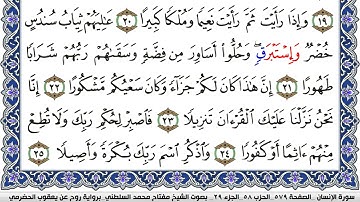 ١٩ وَإِذَا رَأَيْتَ ثَمَّ رَأَيْتَ نَعِيمًا وَمُلْكًا كَبِيرًا ٢٠ عَلِيَهُمْ ثِيَابُ سُندُسٍ
خُضْرٌ وَإِسْتَبْرَقٍ وَحُلُّوا أَسَاوِرَ مِن فِضَّةٍ وَسَقَىٰهُمْ رَبُّهُمْ شَرَابًا
طَهُورًا ٢١ إِنَّ هَٰذَا كَانَ لَكُمْ جَزَآءً وَكَانَ سَعْيُكُم مَّشْكُورًا ٢٢ إِنَّا
نَحْنُ نَزَّلْنَا عَلَيْكَ ٱلْقُرْءَانَ تَنزِيلًا ٢٣ فَٱصْبِرْ لِحُكْمِ رَبِّكَ وَلَا تُطِعْ
مِنْهُمُ ءَاثِمًا أَوْ كَفُورًا ٢٤ وَٱذْكُرِ ٱسْمَ رَبِّكَ بُكْرَةً وَأَصِيلًا ٢٥
سورة الإنسان الصفحة ٥٧٩ الحزب ٥٨ الجزء ٢٩ بصوت الشيخ مفتاح محمد السلطني برواية روح عن يعقوب الحضرمي